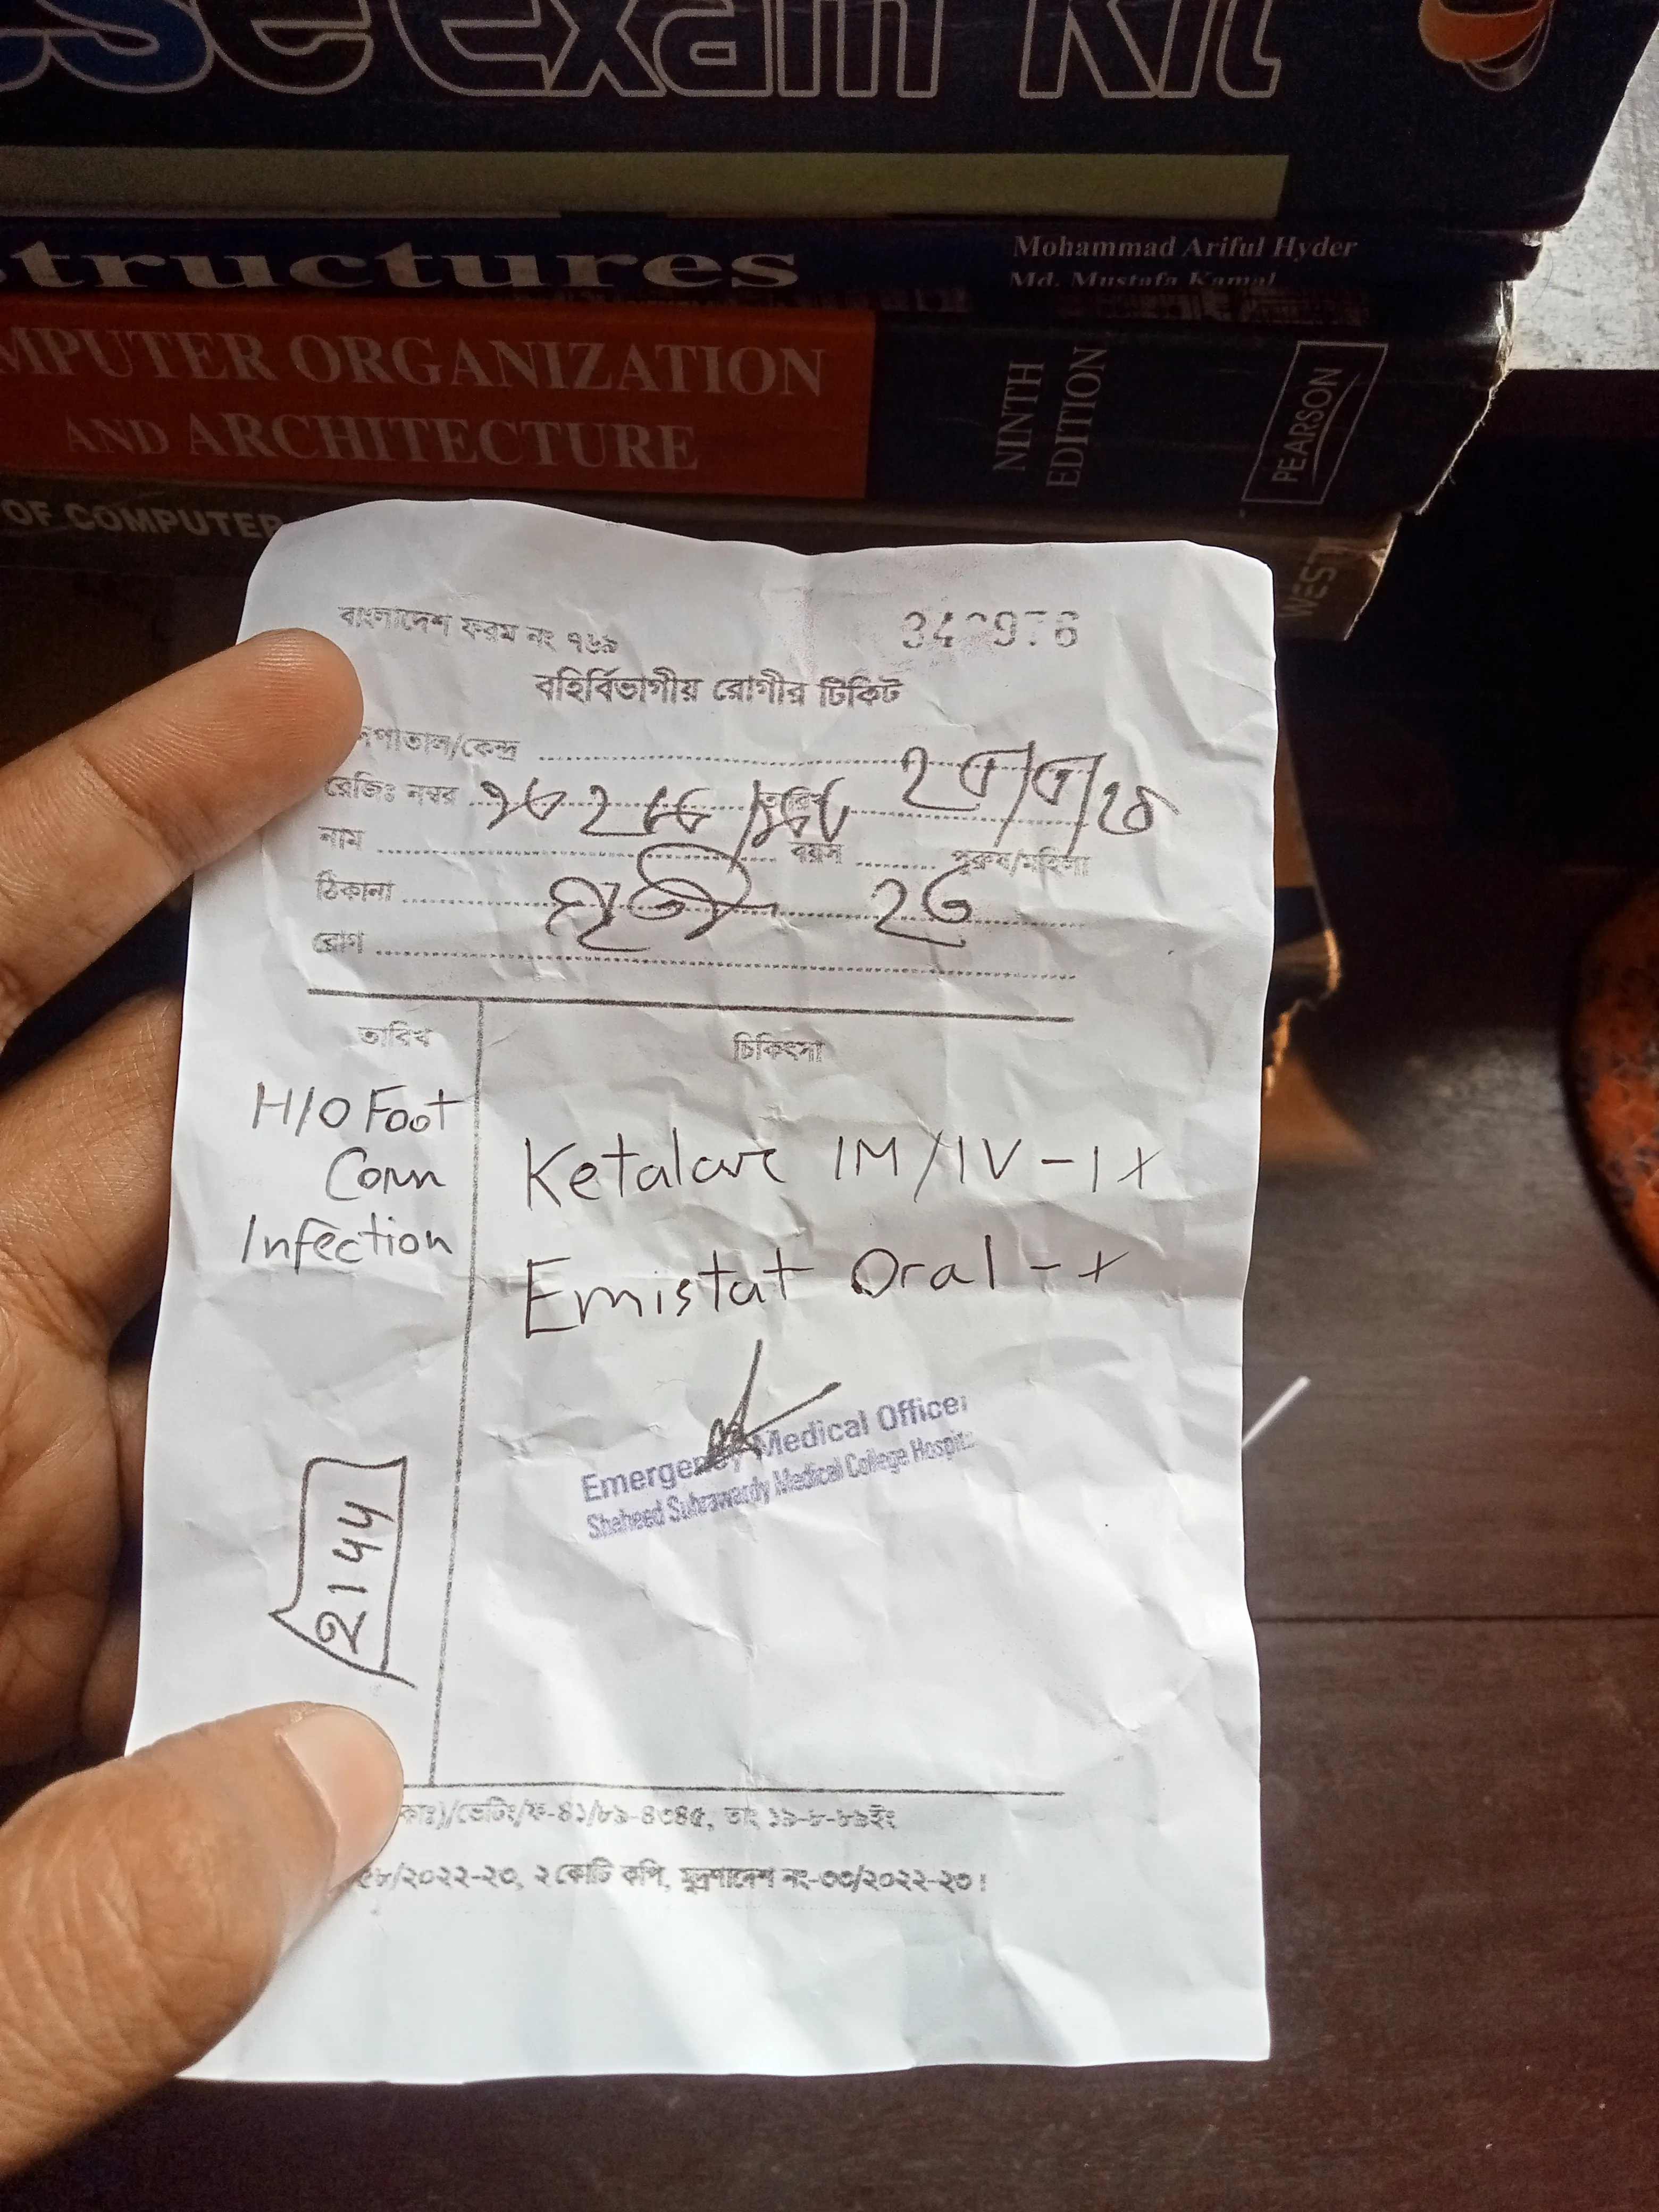 se Exam Kit
tructures
Mohammad Ariful Hyder
Md. Mustafa Kamal
MPUTER ORGANIZATION
AND ARCHITECTURE
NINTH
EDITION
PEARSON
OF COMPUTER
WEST
বাংলাদেশ ফরম নং ৭৬৯
বহির্বিভাগীয় রোগীর টিকিট
পাতাল/কেন্দ্র
রেজিঃ নম্বর
নাম বয়স পুরুষ/মহিলা
ঠিকানা
রোগ
তারিখ চিকিৎসা
H/O Foot
Corn
Infection
Ketalar IM/IV - 1 x
Emistat Oral - x
Emergency Medical Officer
Shaheed Suhrawardy Medical College Hospit
2144
কাঃ)/ভেটিং/ফ-৪১/৮৯-৪৩৪৫, তাং ১৯-৮-৮৯ইং
৫৮/২০২২-২৩, ২ কোটি কপি, মুদ্রণাদেশ নং-৩৩/২০২২-২৩।